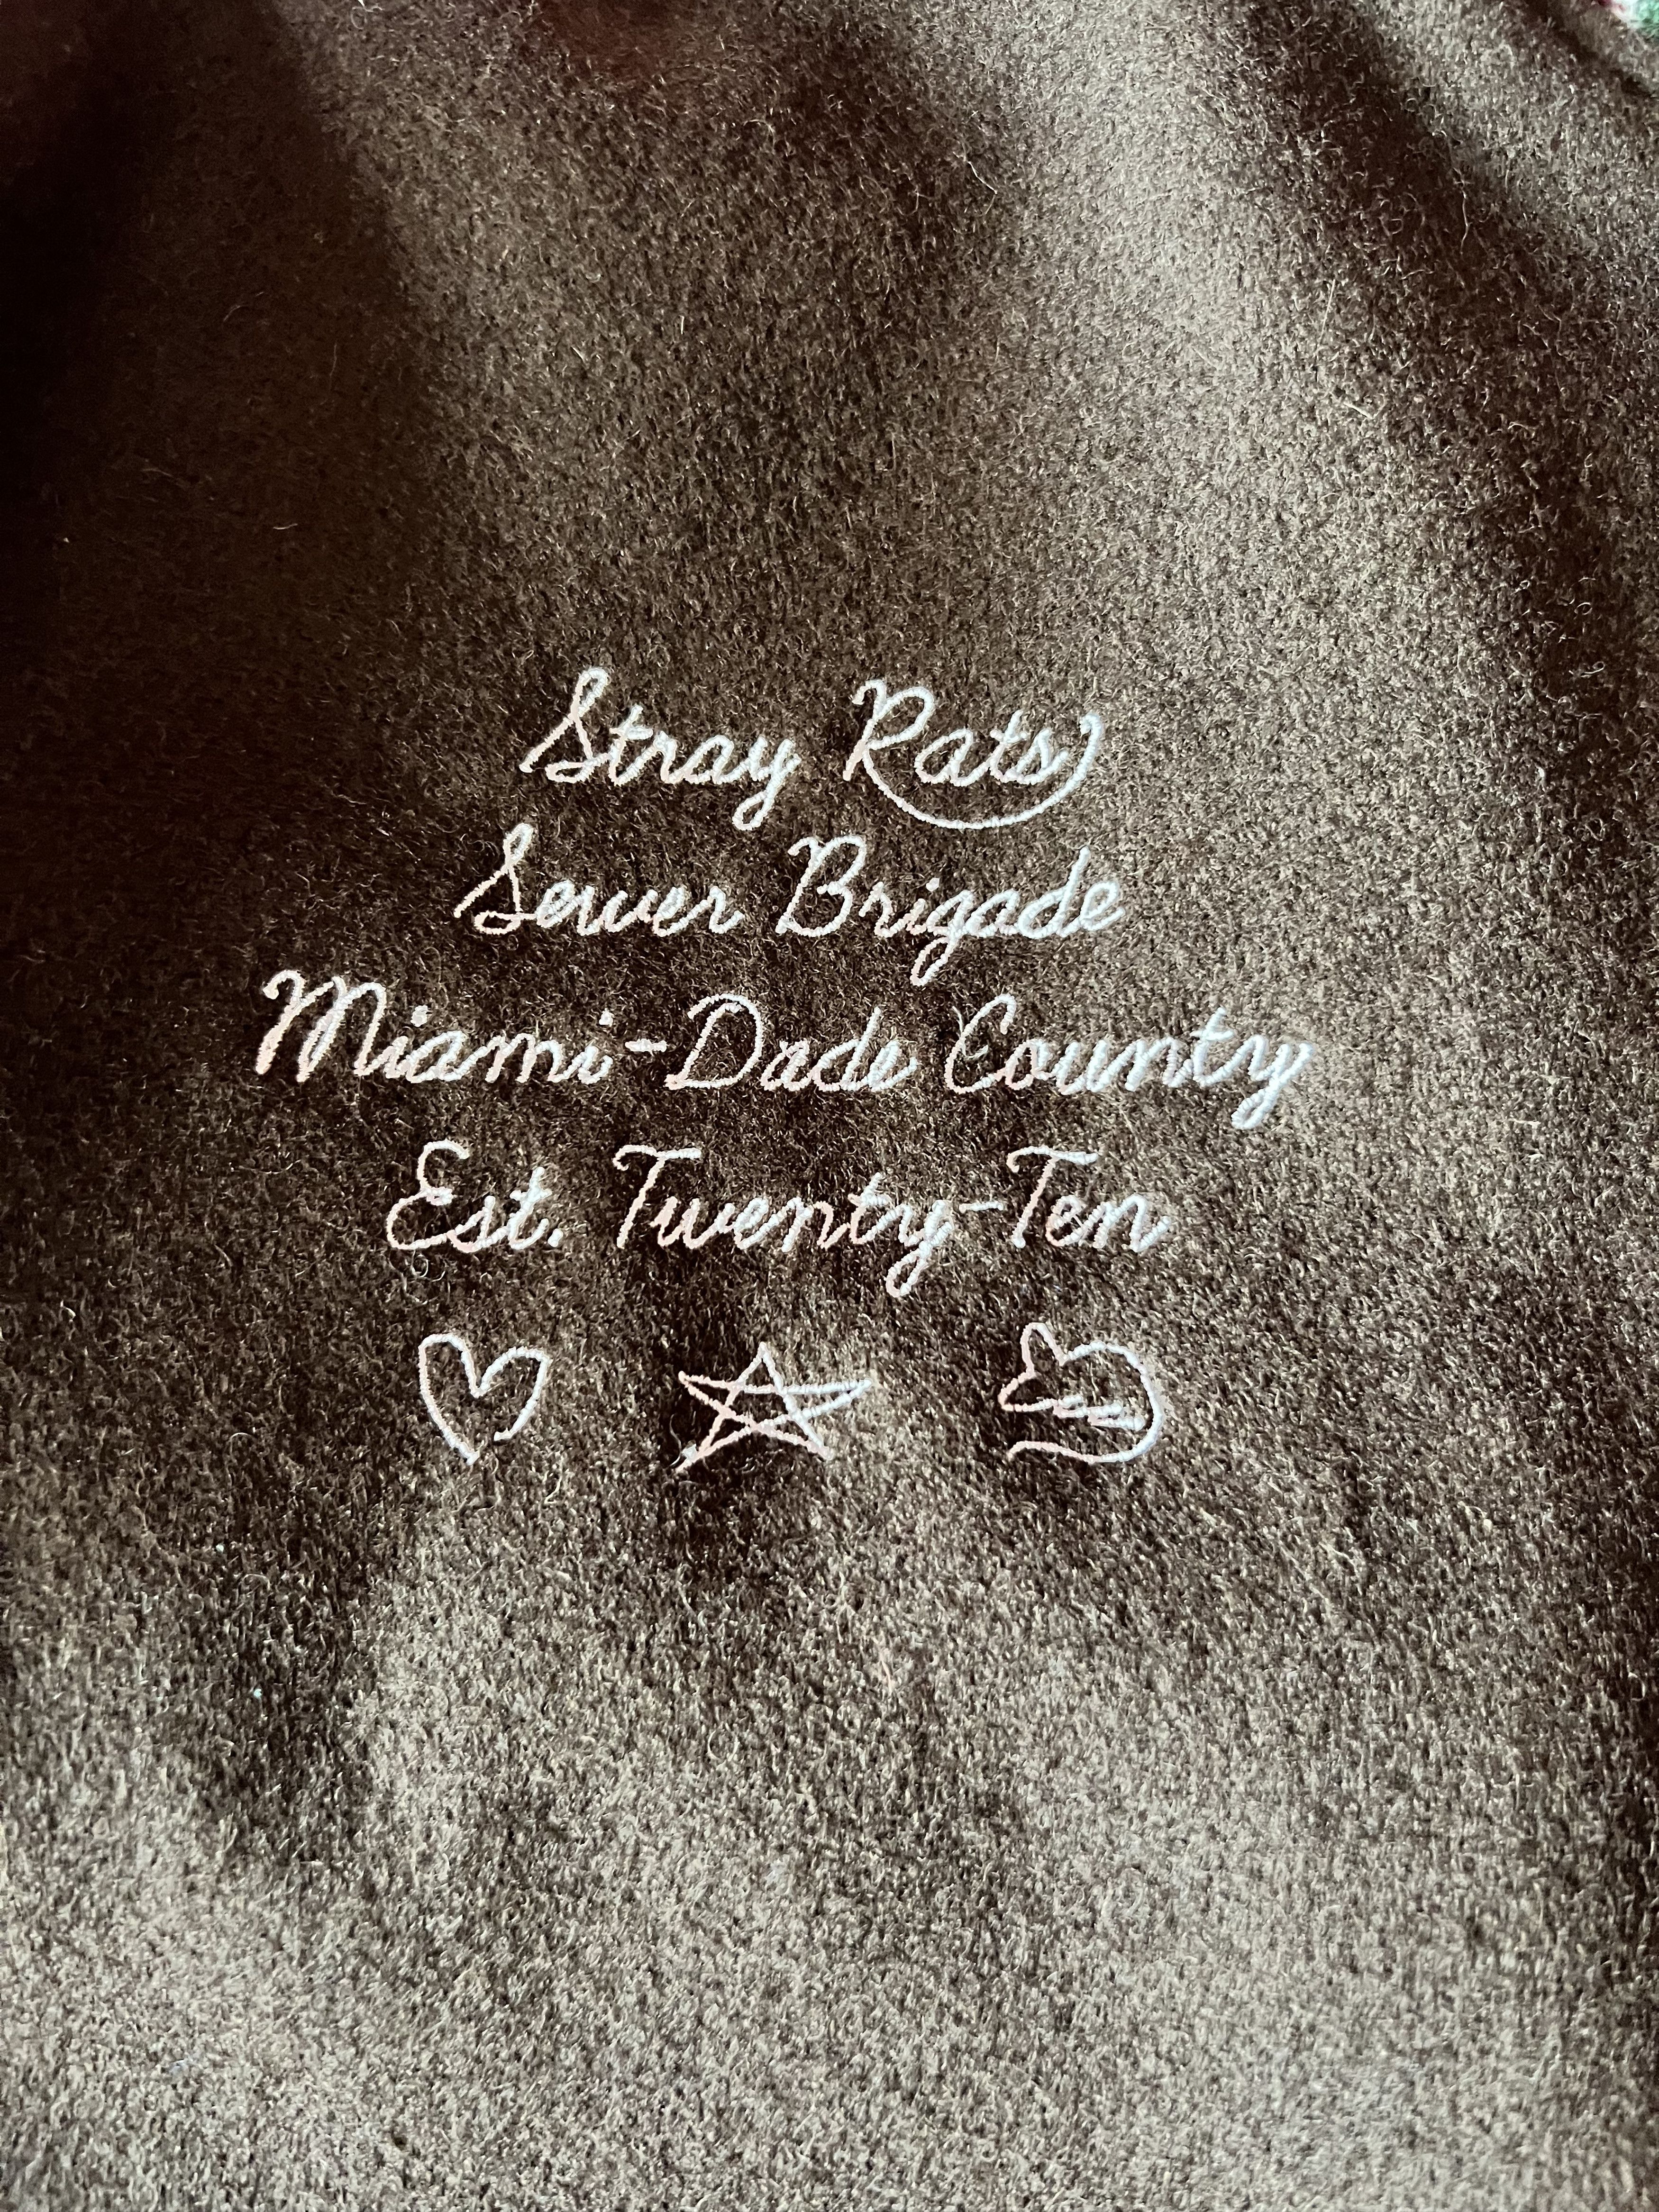 Stray Rats
Sewer Brigade
Miami-Dade County
Est. Twenty-Ten